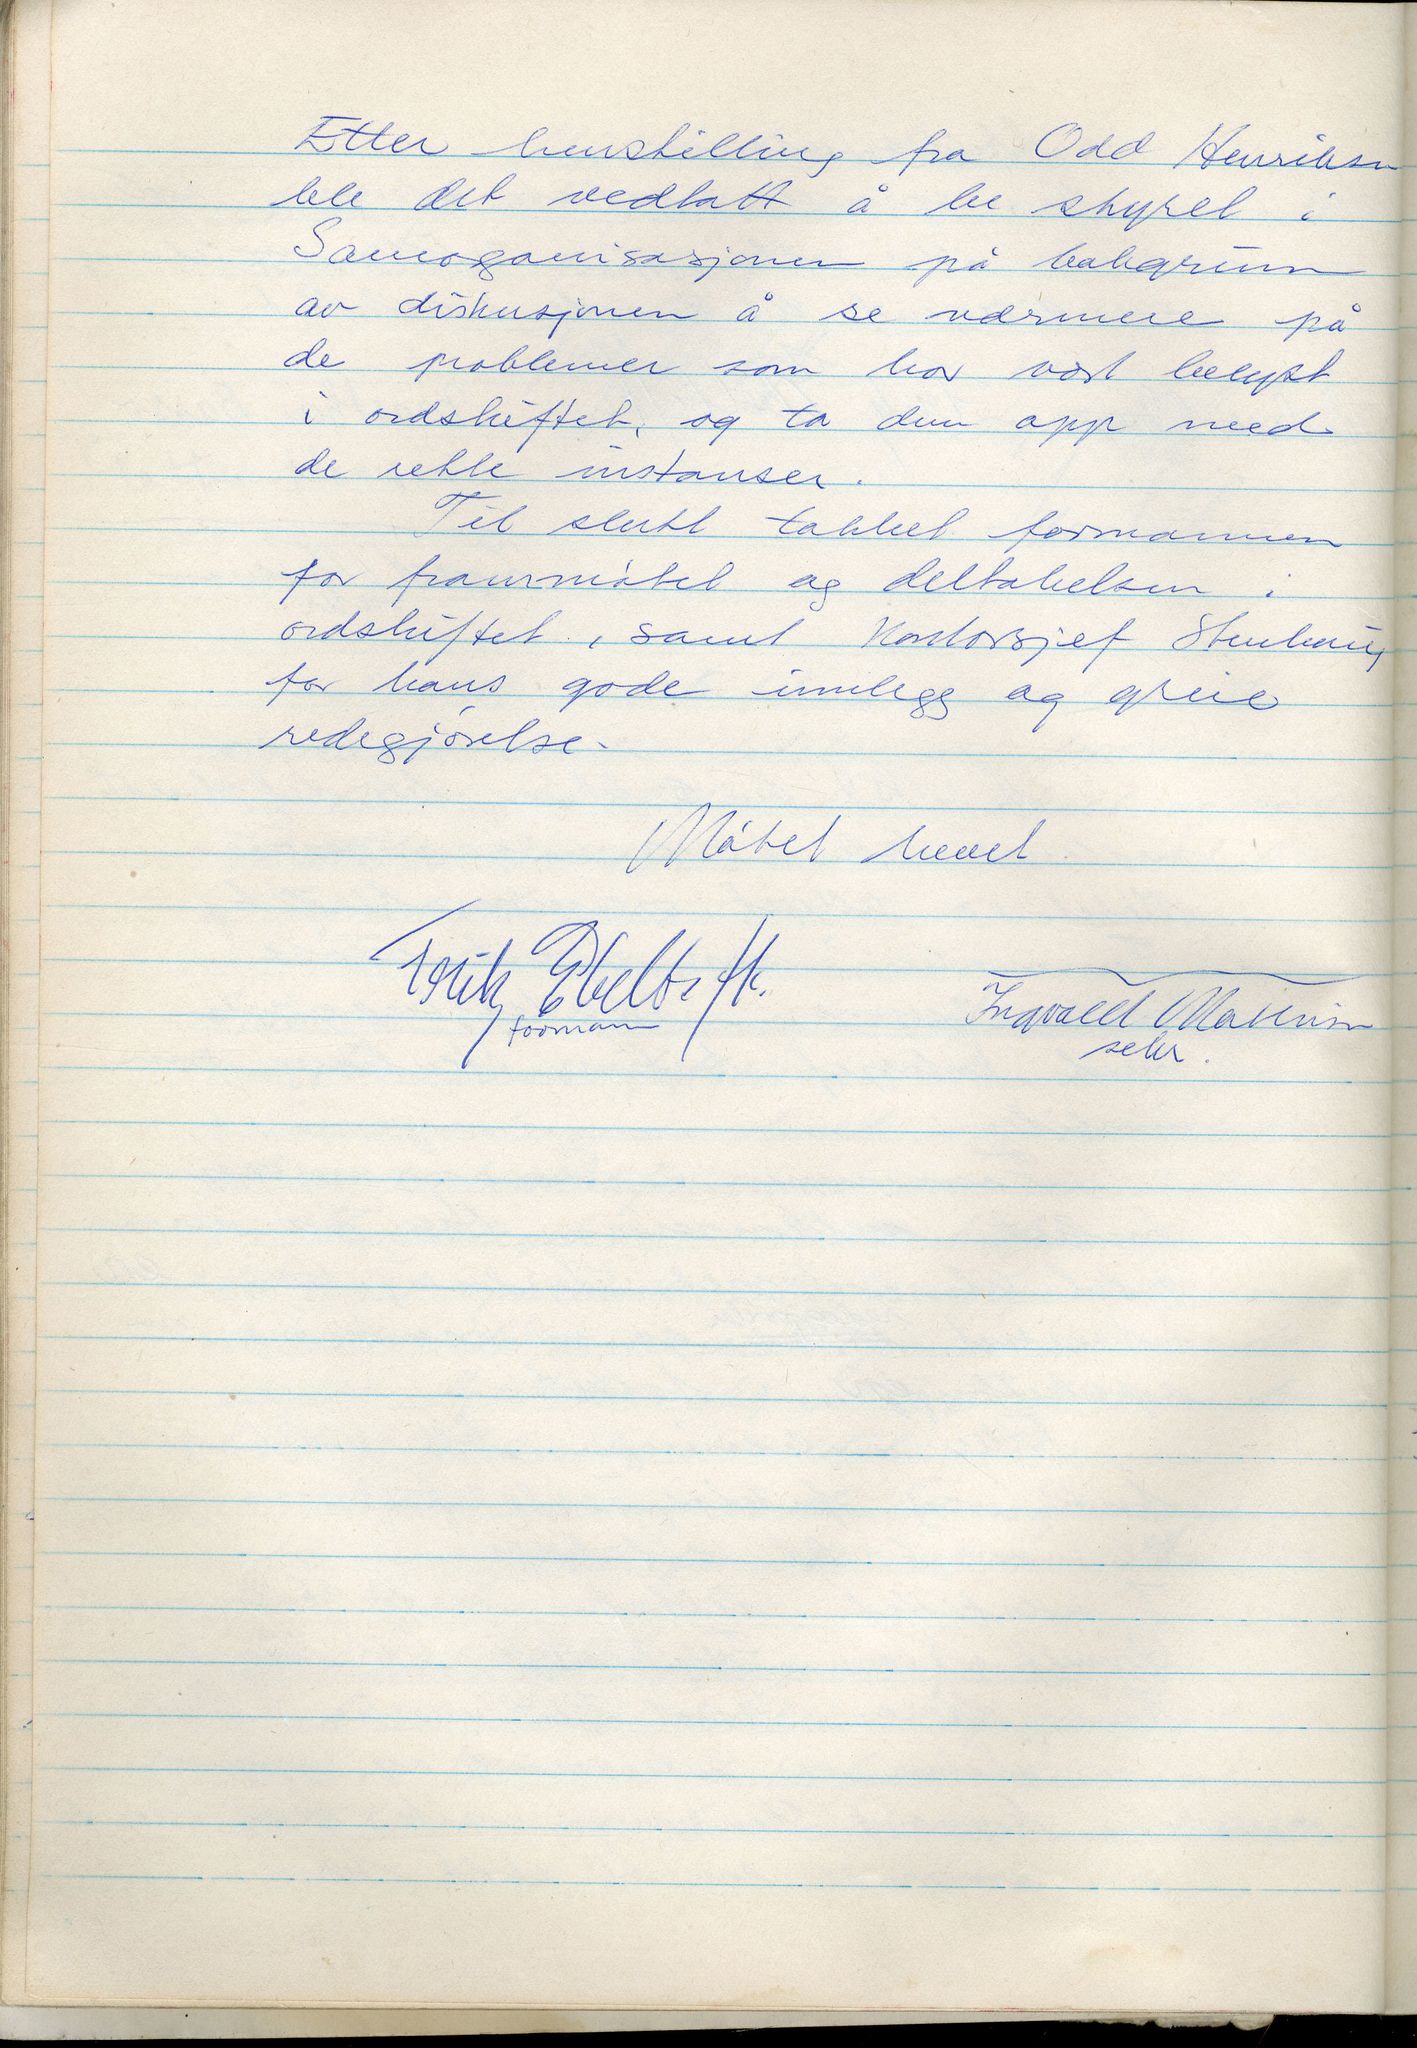 Etter henstilling fra Odd Henriksen
ble det vedtatt å be styret i
Samorganisasjonen på bakgrunn
av diskusjonen å se nærmere på
de problemer som har vært belyst
i ordskiftet, og ta dem opp med
de rette instanser.
Til slutt takket formannen
for frammøtet og deltakelsen i
ordskiftet, samt Kontorsjef Stenhaug
for hans gode innlegg og greie
redegjørelse.
Møtet hevet.
Ebeltoft
formann
Ingvald
sekr.